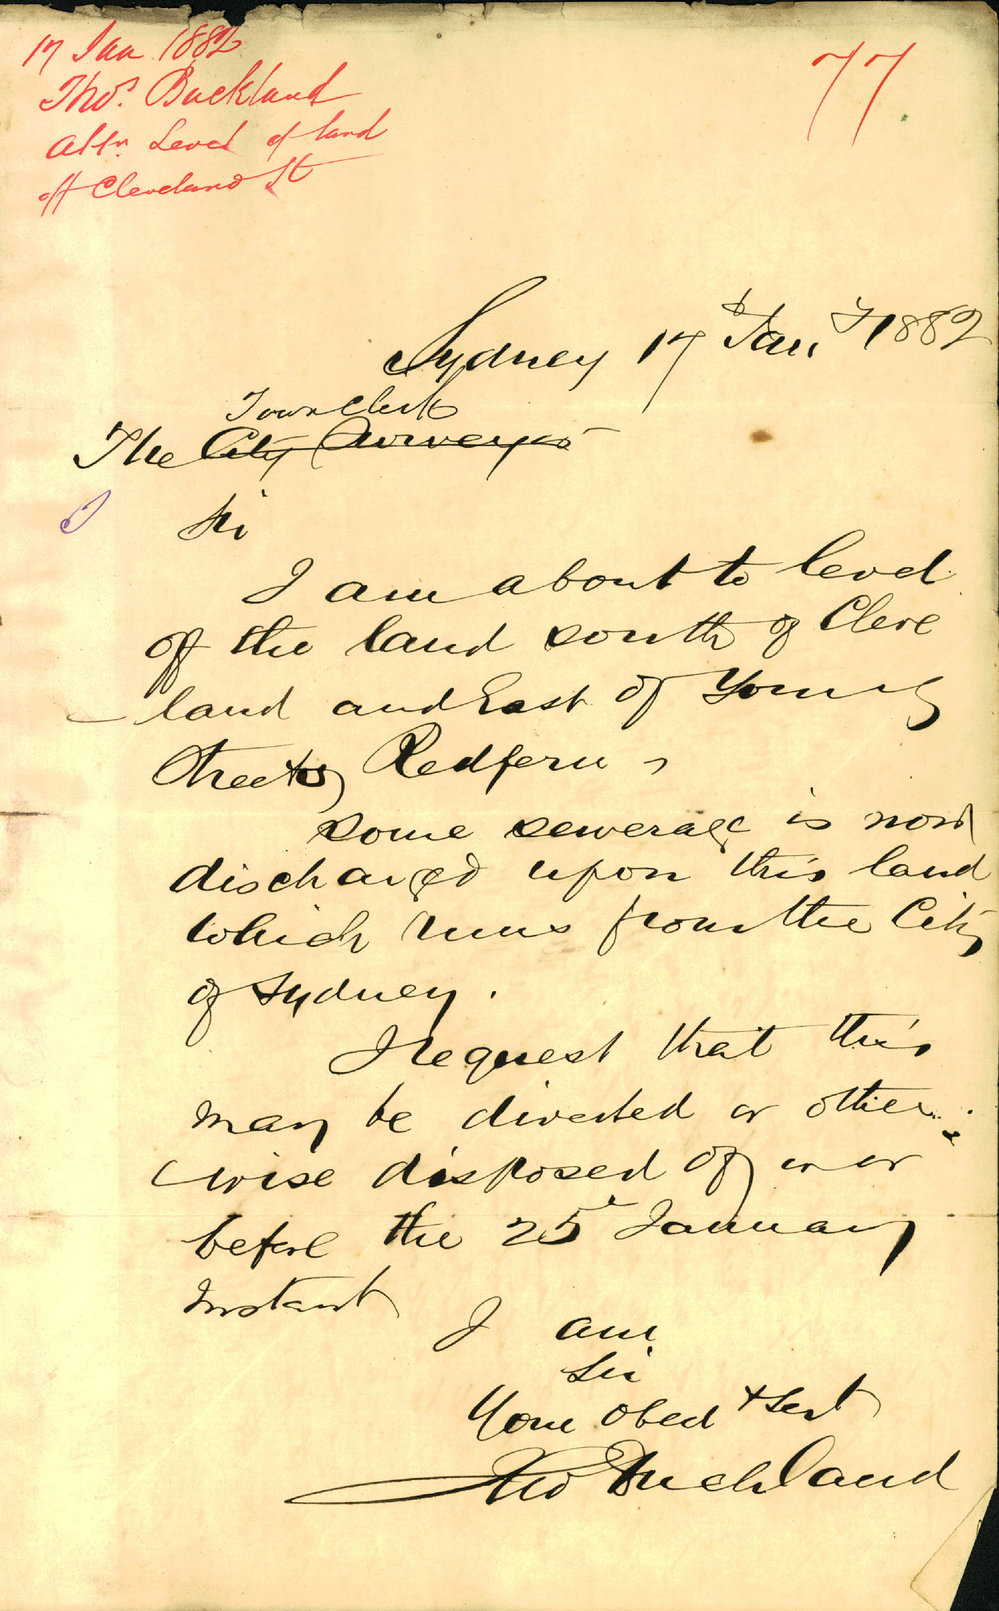 17 Jan 1882
Thos. Buckland
Altn Level of land
off Cleveland St
77
Sydney 17 Jany 1882
Town Clerk
The City Surveyor
Sir
I am about to level
off the land south of Cleve
land and East of Young
Streets Redfern,
some sewerage is now
discharged upon this land
which runs from the City
of Sydney.
I request that this
may be diverted or other
wise disposed of on or
before the 25 January
Instant
I am
Sir
Your Obed t Sert
Tho Buckland